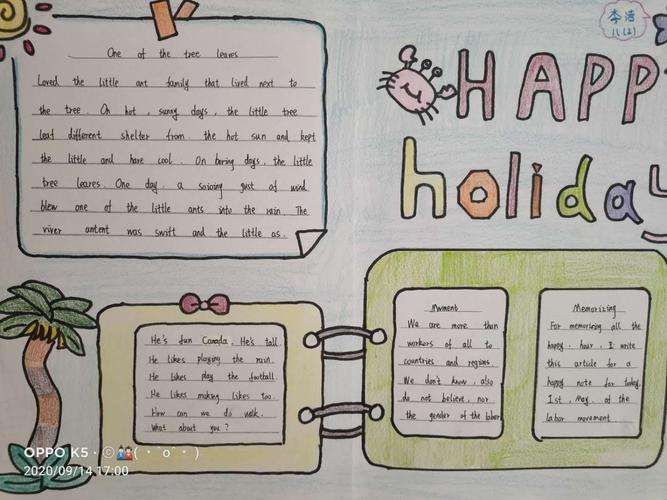 One of the tree leaves
Loved the little ant family that lived next to
the tree. On hot, sunny days, the little tree
leaf different shelter from the hot sun and kept
the little and have cool. On boring days the little
tree leaves. One day a soioing gust of wind
blew one of the little ants into the rain The
river antent was swift and the little as.
李洁
HAPPY
holiday
He's fun Canada. He's tall.
He likes playing the rain.
He likes play the football.
He likes making likes too.
How can we do walk.
What about you?
Mwment
We are more than
workers of all to
countries and regions.
We don't know, also
do not believe, nor
the gender of the
Memorizing
For memorizing all the
happy, hour, I write
this article for a
happy note for today.
1st, May. of the
labor movement
OPPO K5
2020/09/14 17:00